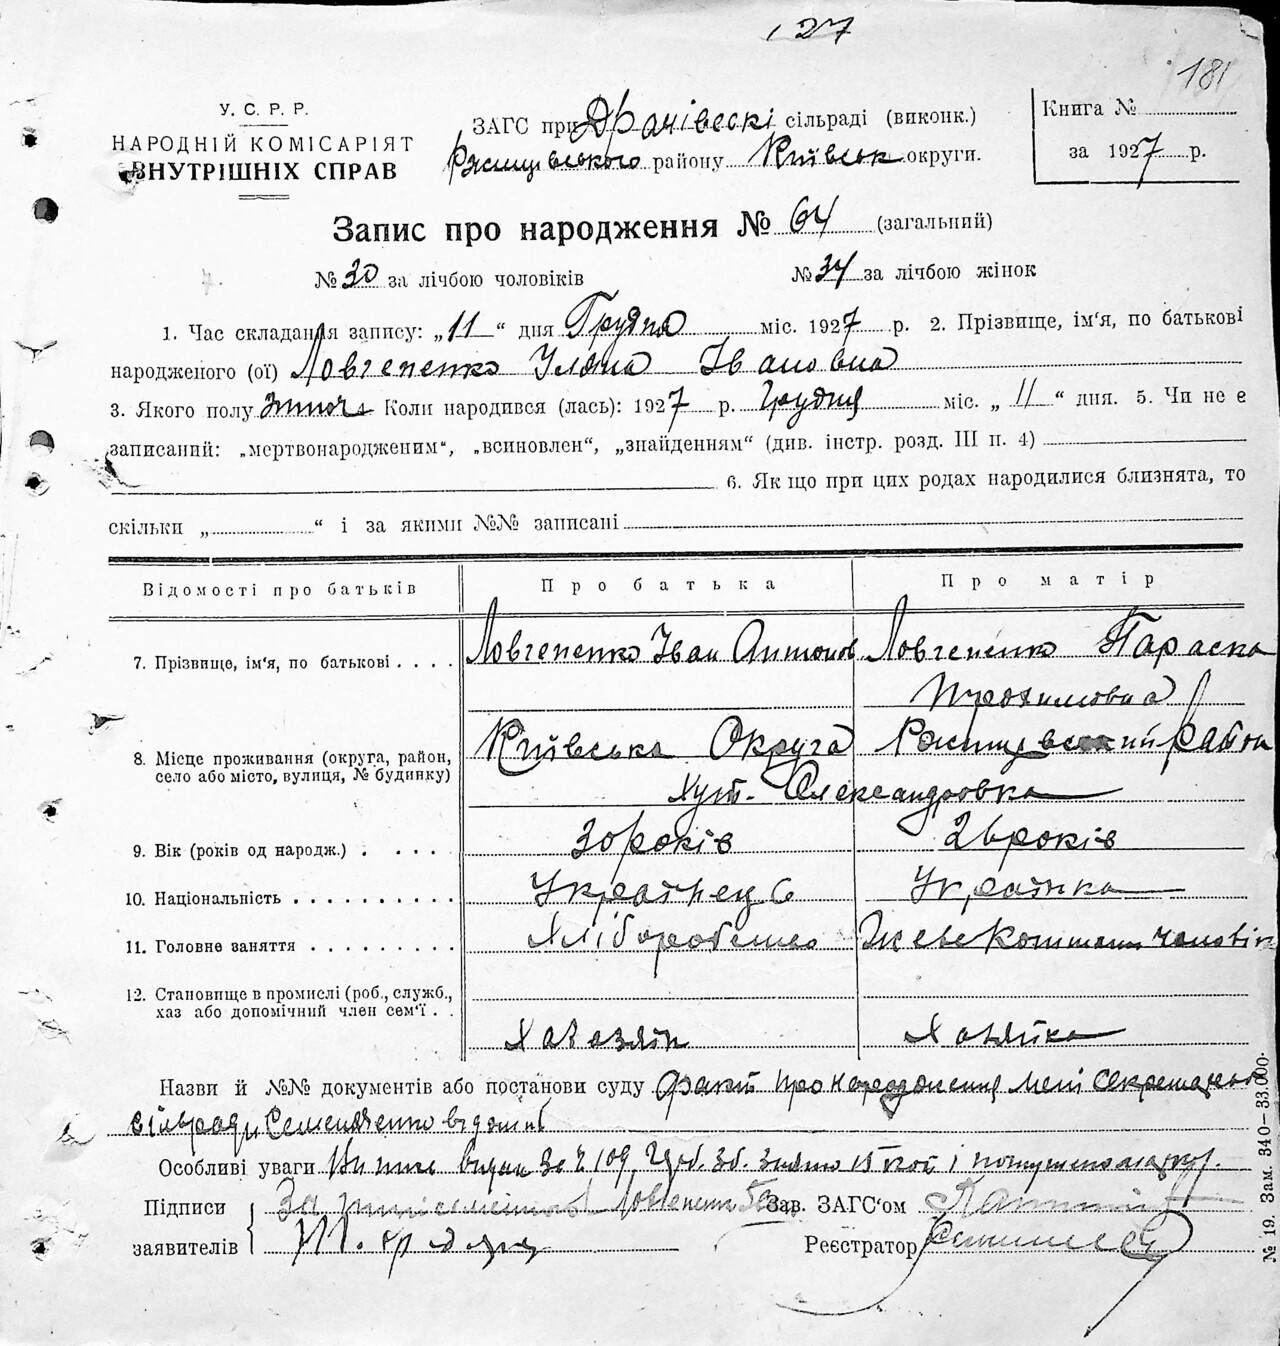 127
181
У. С. Р. Р.
НАРОДНІЙ КОМІСАРІЯТ
ВНУТРІШНІХ СПРАВ
ЗАГС при сільраді (виконк.)
Ржищівського району Київськ округи.
Книга №
за 1927 р.
Запис про народження № 64 (загальний)
№ 30 за лічбою чоловіків № 34 за лічбою жінок
1. Час складання запису: „11“ дня Грудня міс. 1927 р. 2. Прізвище, ім'я, по батькові
народженого (ої) Ловченко Уляна Івановна
3. Якого полу жіноч. Коли народився (лась): 1927 р. Грудня міс. „11“ дня. 5. Чи не є
записаний: „мертвонародженим“, „всиновлен“, „знайденням“ (див. інстр. розд. III п. 4)
6. Як що при цих родах народилися близнята, то
скільки „ “ і за якими №№ записані
Відомості про батьків Про батька Про матір
7. Прізвище, ім'я, по батькові Іван Антонов Параска
Трохимовна
8. Місце проживання (округа, район,
село або місто, вулиця, № будинку) Київська Округа Ржищевський район
Хут. Олександровка
9. Вік (років од народж.) 30 років 26 років
10. Національність Українець Українка
11. Головне заняття Хліборобство чоловік
12. Становище в промислі (роб., служб.,
хаз або допомічний член сем'ї Хазазяїн Хазяйка
Назви й №№ документів або постанови суду Факт про народження мені секретарю
сільради Семеняченко відомий
Особливі уваги
Підписи За Зав. ЗАГС'ом
заявителів Реєстратор
№ 19. Зам. 340—33.000.